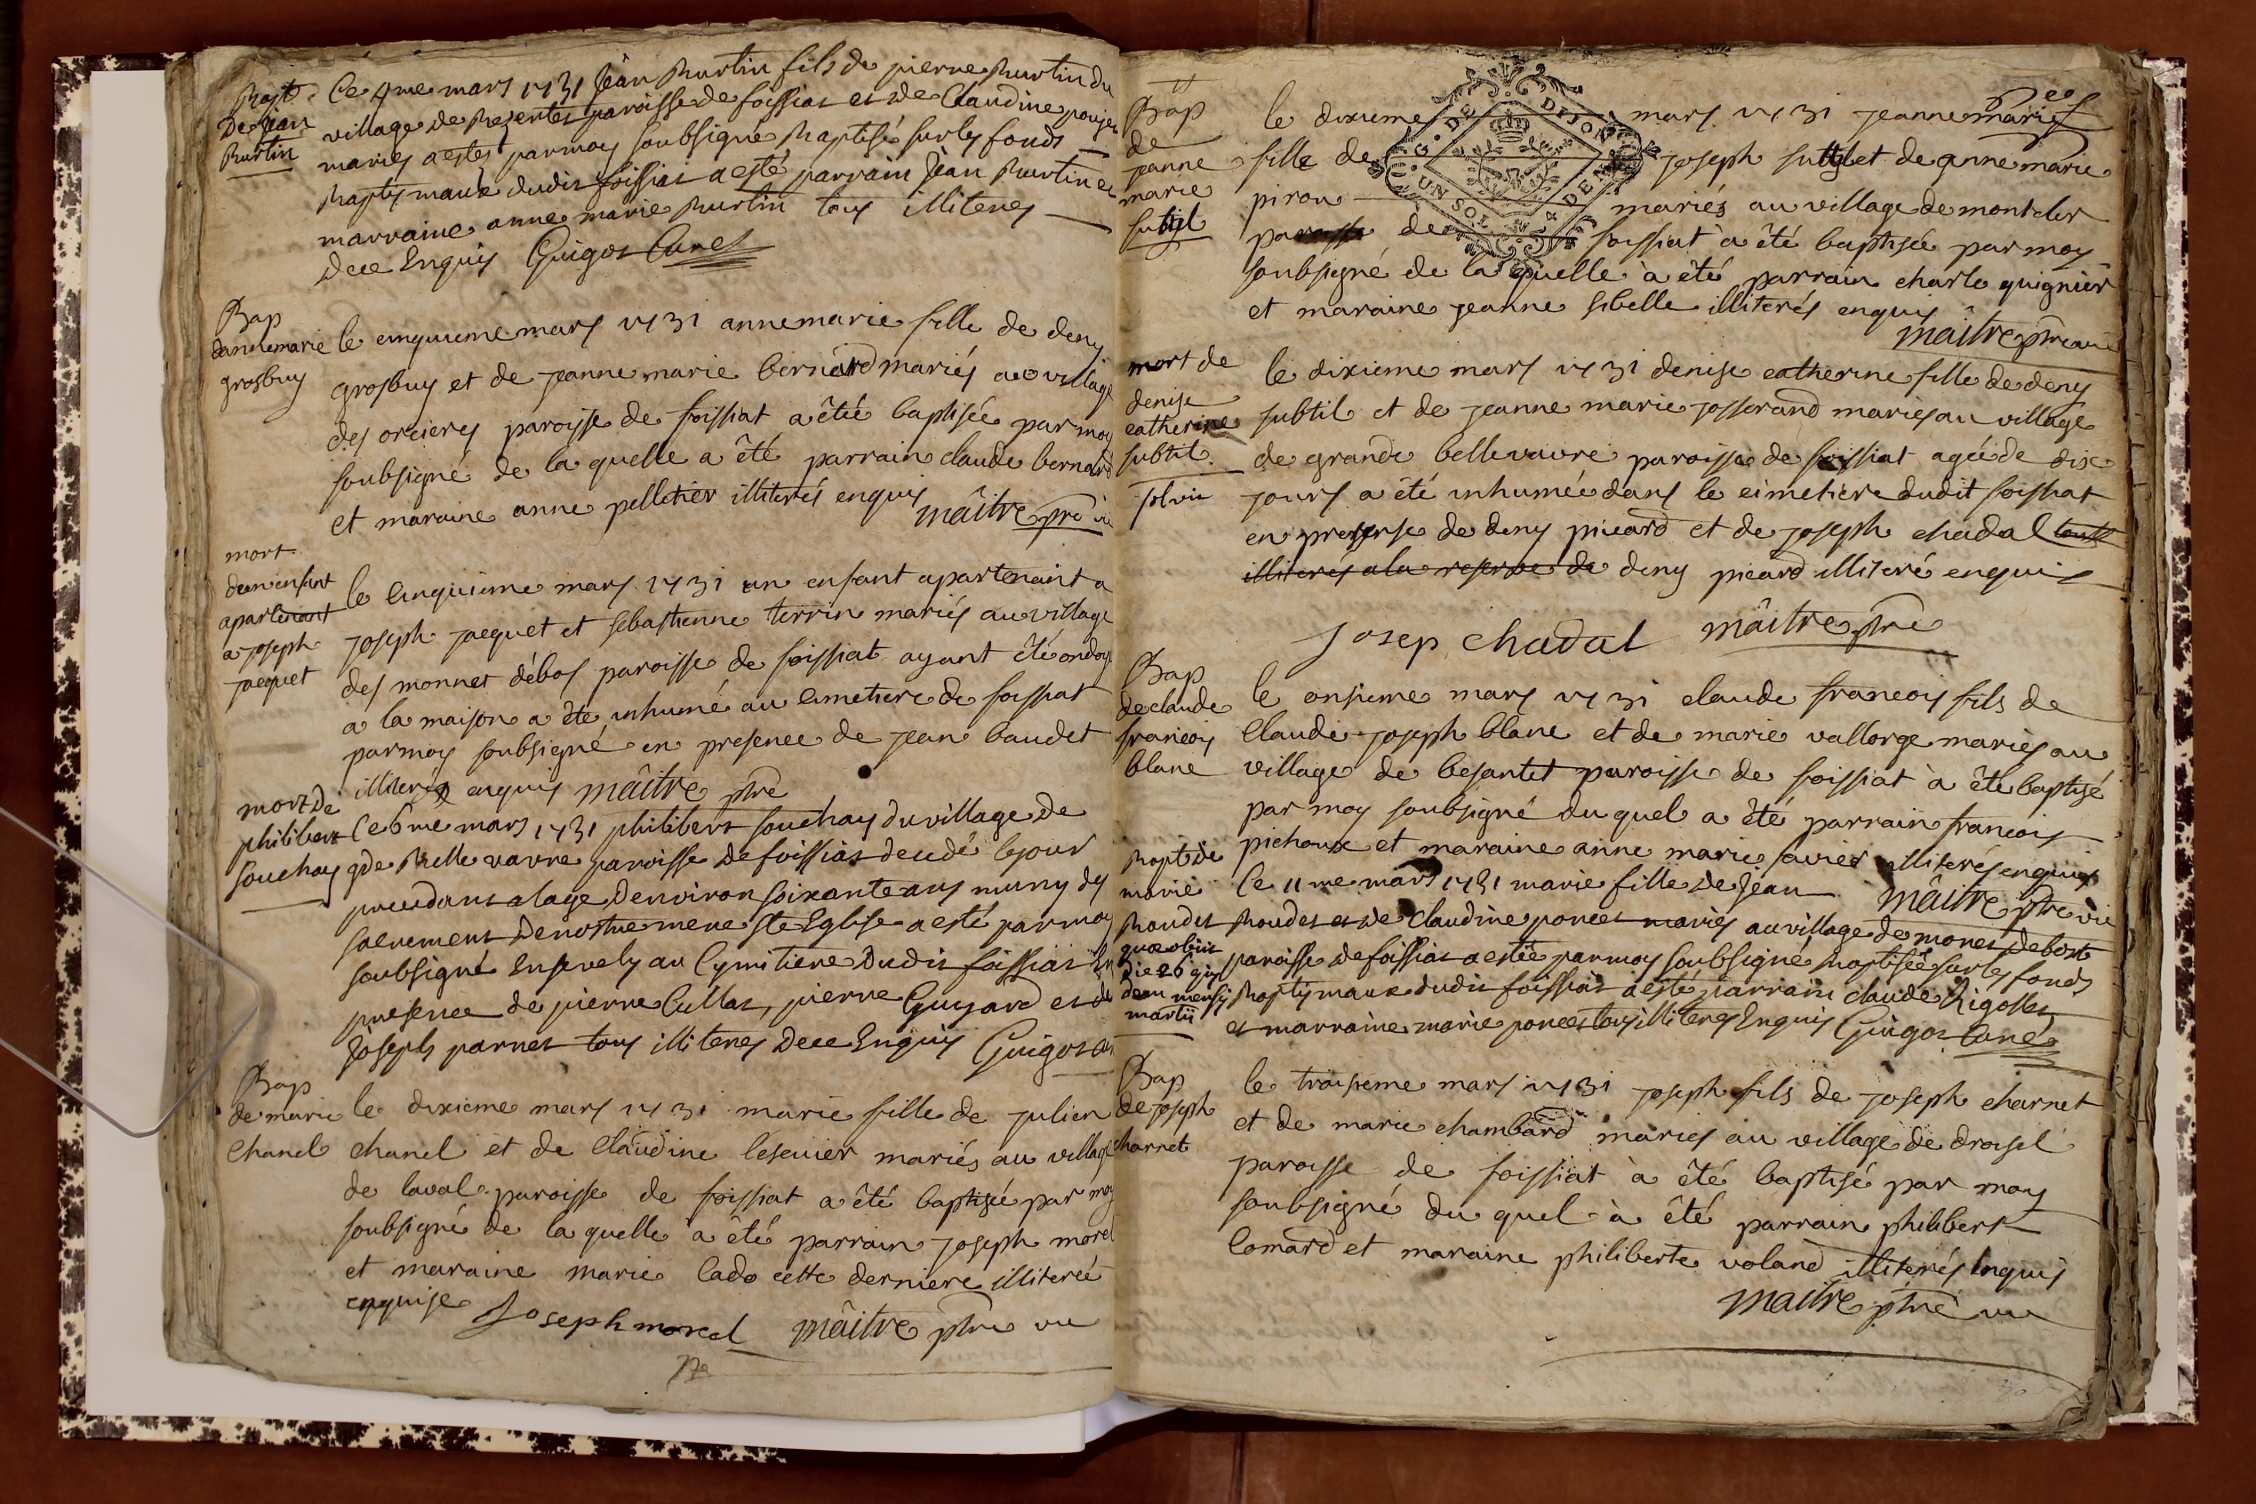 Bapt.
De Jean
Burtin
Ce 4me mars 1731 Jean Burtin fils de pierre Burtin du
village de Bezentet paroisse de foissiat et de Claudine poujet
mariés a esté par moy soubsigné Baptisé sur les fonds
Baptismaux dudit foissiat a esté parrain Jean Burtin et
marraine anne marie Burtin tous illiteres
de ce Enquis Guigot Curé
Bap
dannemarie
grosbuy
le cinquieme mars 1731 annemarie fille de deny
grosbuy et de jeanne marie bernard mariés au village
des orcieres paroisse de foissiat a êtée baptisée par moy
soubsigné de la quelle a êté parrain claude bernard
et maraine anne pelletier illiterés enquis maître ptre vic
mort
d'un enfant
apartenant
a joseph
jacquet
le cinquieme mars 1731 un enfant apartenant a
joseph jacquet et sebastienne terrin mariés au village
des monnet débos paroisse de foissiat ayant êté ondoyé
a la maison a ête inhumé au cimetiere de foissiat
par moy soubsigné en presence de jean baudet
illiteré enquis maître ptre
mort de
philibert
souchay
Ce 6me mars 1731 philibert souchay du village de
gde Belle vavre paroisse de foissiat decedé le jour
precedant a lage denviron soixante ans muny des
sacrement de nostre mere Ste Eglise a esté par moy
soubsigné Ensevely au Cymitiere dudit foissiat En
presence de pierre Cullat, pierre Guyard et de
Joseph parnet tous illiteres de ce Enquis Guigot curé
Bap
de marie
chanel
le dixieme mars 1731 marie fille de julien
chanel et de Claudine lescuier mariés au village
de laval paroisse de foissiat a êté baptisée par moy
soubsigné de la quelle a êté parrain joseph morel
et maraine marie Cado cette derniere illiterée
enquise Joseph morel maître ptre vic
Bap
de
jeanne
marie
subtil
le dixieme mars 1731 jeanne marie
fille de joseph subtil et de anne marie
piron mariés au village de montcler
paroisse de foissiat à êté baptisée par moy
soubsigné de la quelle à êté parrain charle guignier
et maraine jeanne sibelle illiterés enquis
maître ptre vic
G. DE DIJON
UN SOL 4 DEN
mort de
denise
catherine
subtil
solvit
le dixieme mars 1731 denise catherine fille de deny
subtil et de jeanne marie josserand mariés au village
de grande bellevavre paroisse de foissiat agée de dix
jours a êté inhumée dans le cimetiere dudit foissiat
en presense de deny picard et de joseph chadal tous
illiterés a la reserve de deny picard illiteré enquis
Josep chadal maître ptre
Bap
de claude
francois
blanc
le onsieme mars 1731 claude francois fils de
Claude joseph blanc et de marie vallorge mariés au
village de besantet paroisse de foissiat à ête baptisé
par moy soubsigné du quel a êté parrain francois
pichoux et maraine anne marie favier illiterés enquis
maître ptre vic
Bapt. de
marie
Boudet
quæ obiit
die 26
mensis
martii
Ce 11me mars 1731 marie fille de Jean
Boudet et de Claudine poncet mariés au village de monet debost
paroisse de foissiat a estée par moy soubsigné Baptisée sur les fonds
Baptismaux dudit foissiat a esté parrain claude Rigollet
et marraine marie poncet tous illiteres Enquis Guigot Curé
Bap
de joseph
charnet
le troisieme mars 1731 joseph fils de joseph charnet
et de marie chambard mariés au village de droisel
paroisse de foissiat à êté baptisé par moy
soubsigné du quel à êté parrain philibert
Comard et maraine philiberte voland illiterés Enquis
maître ptre vic